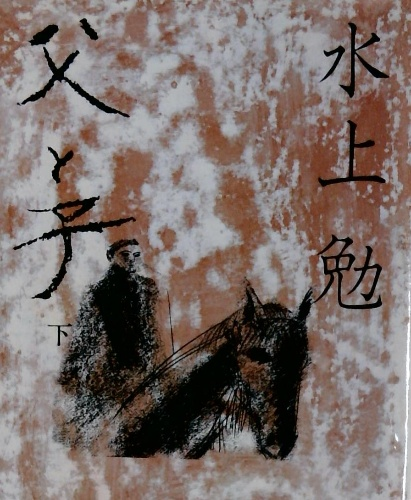 水上勉
父と子
下